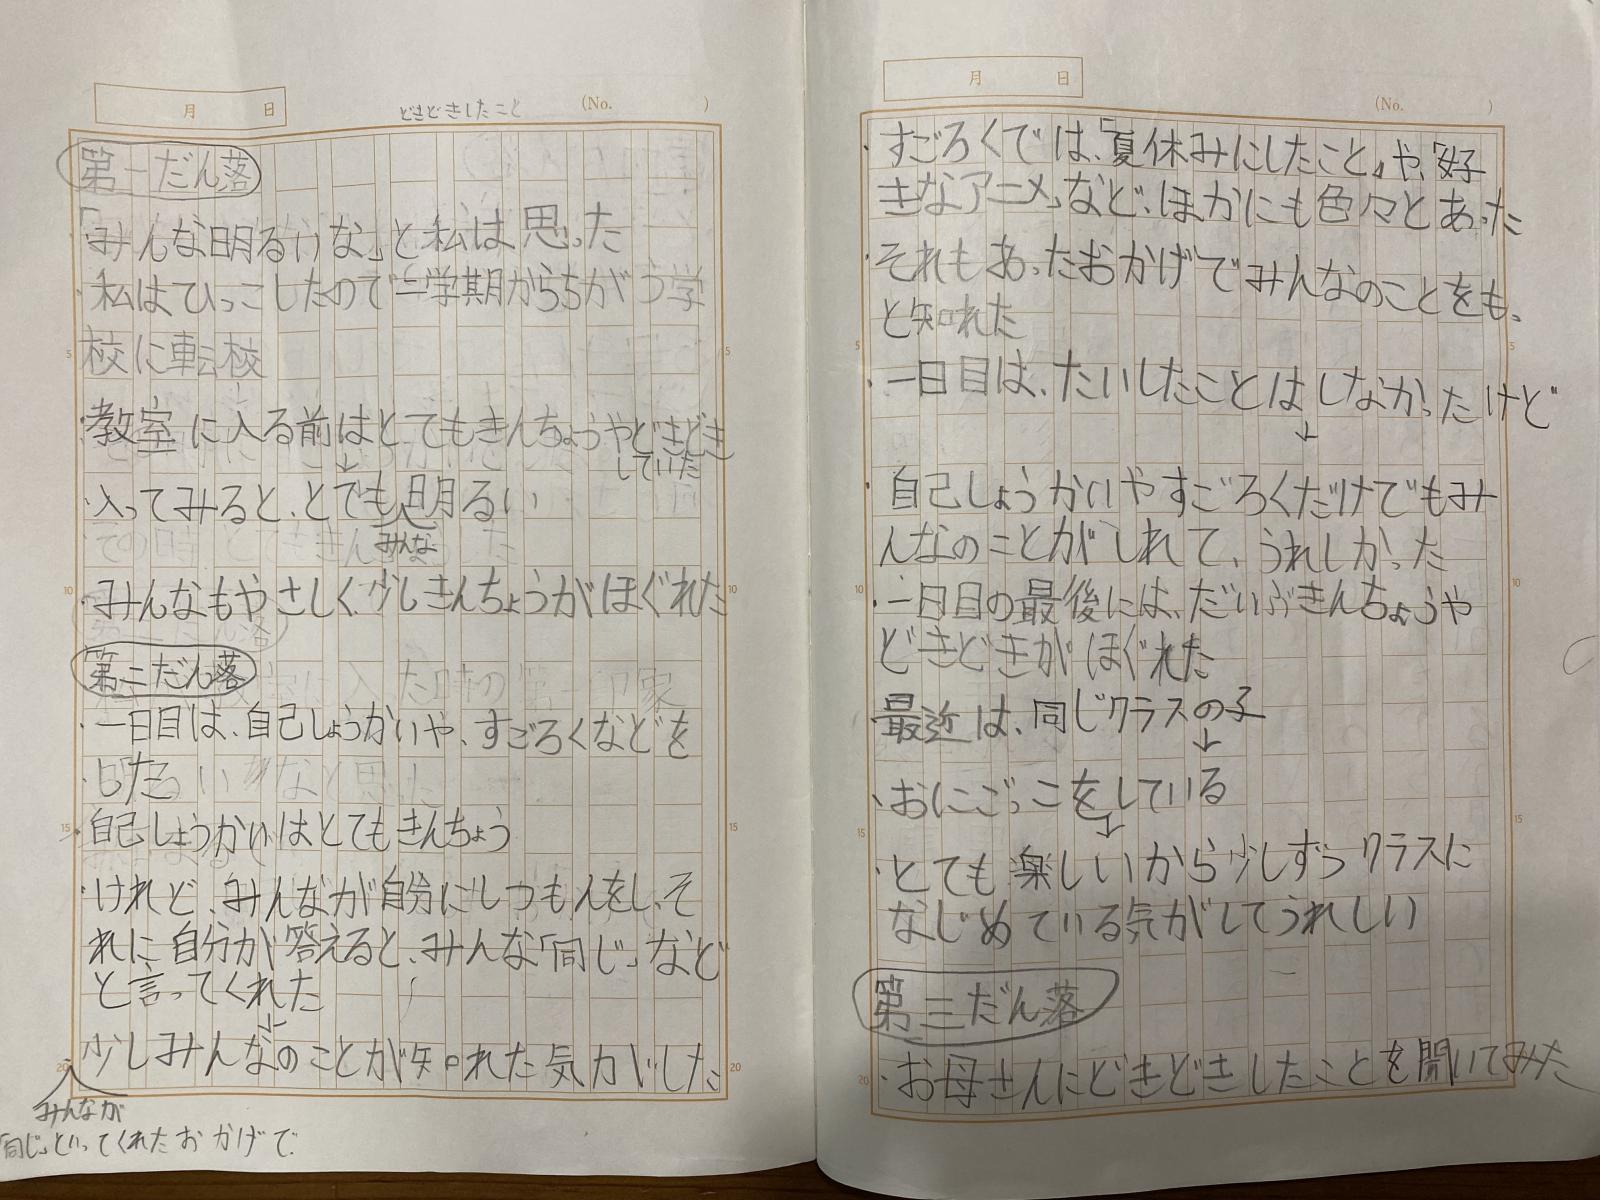 月 日
どきどきしたこと
(No. )
第一だん落
「みんな明るいな」と私は思った
・私はひっこしたので二学期からちがう学
校に転校
・教室に入る前はとてもきんちょうやどきどき
していた
↓
・入ってみると、とても明るい
みんな
・みんなもやさしく、少しきんちょうがほぐれた
第二だん落
・一日目は、自己しょうかいや、すごろくなどを
・した
・自己しょうかいはとてもきんちょう
・けれど、みんなが自分にしつもんをし、そ
れに自分が答えると、みんな「同じ」など
と言ってくれた
↓
少しみんなのことが知れた気がした
みんなが
「同じ」といってくれたおかげで
5
10
15
20
5
10
15
20
月 日
(No. )
・すごろくでは、「夏休みにしたこと」や、「好
きなアニメ」など、ほかにも色々とあった
・それもあったおかげでみんなのことをも、
と知れた
・一日目は、たいしたことはしなかったけど
↓
・自己しょうかいやすごろくだけでもみ
んなのことがしれて、うれしかった
・一日目の最後には、だいぶきんちょうや
どきどきがほぐれた
・最近は、同じクラスの子
↓
・おにごっこをしている
↓
・とても楽しいから少しずつクラスに
なじめている気がしてうれしい
第三だん落
・お母さんにどきどきしたことを聞いてみた
5
10
15
20
5
10
15